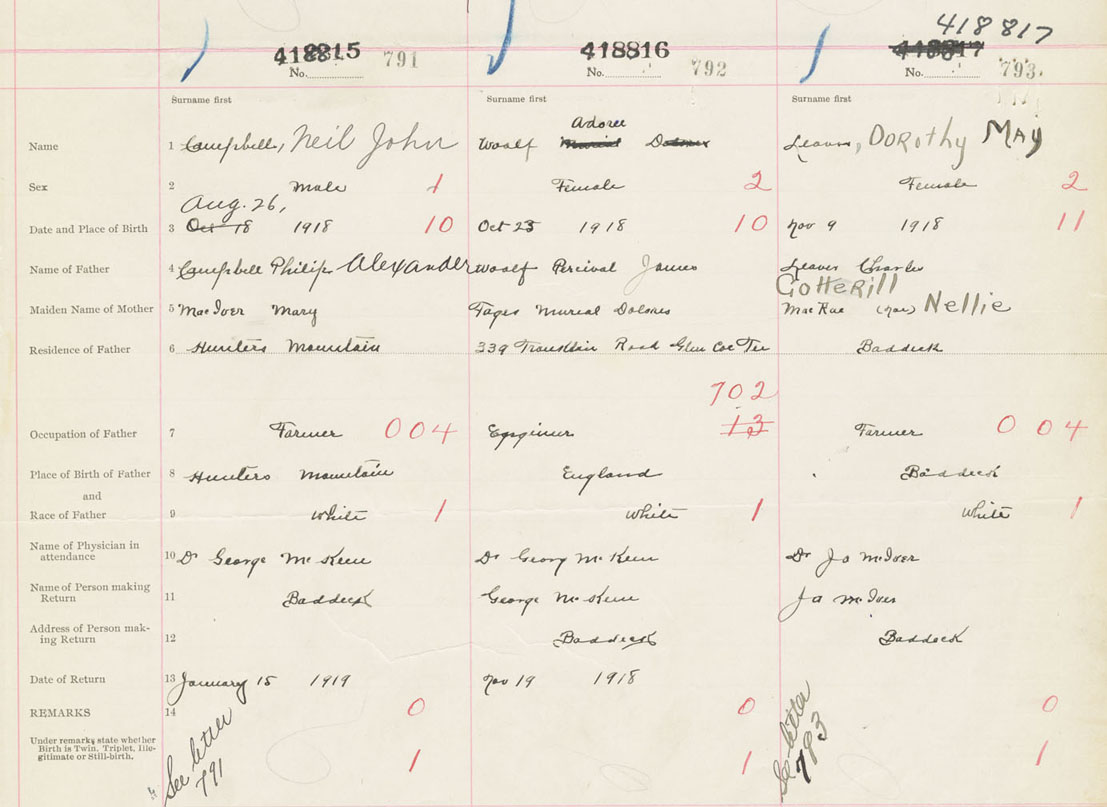 418817
418815 791 418816 792 418817 793
No. No. No.
Surname first Surname first Surname first
Adoree
Name 1 Campbell, Neil John Woolf Murial Dolores Leaver, Dorothy May
Sex 2 Male 1 Female 2 Female 2
Aug. 26,
Date and Place of Birth 3 Oct 18 1918 10 Oct 23 1918 10 Nov 9 1918 11
Name of Father 4 Campbell Philip Alexander Woolf Percival James Leaver Charles
Cotterill
Maiden Name of Mother 5 MacIver Mary Murial Dolores MacRae Nellie
Residence of Father 6 Hunters Mountain 339 Road Glen Baddeck
702
Occupation of Father 7 Farmer 004 Engineer 13 Farmer 0 04
Place of Birth of Father 8 Hunters Mountain England Baddeck
and
Race of Father 9 White 1 White 1 White 1
Name of Physician in
attendance 10 Dr George McKeen Dr Georg McKeen Dr Ja McIver
Name of Person making
Return 11 Baddeck George McKeen Ja McIver
Address of Person mak-
ing Return 12 Baddeck Baddeck
Date of Return 13 January 15 1919 Nov 19 1918
REMARKS 14 0 0 0
Under remarks state whether
Birth is Twin, Triplet, Ille-
gitimate or Still-birth. 1 1 1
See letter
791
See letter
793